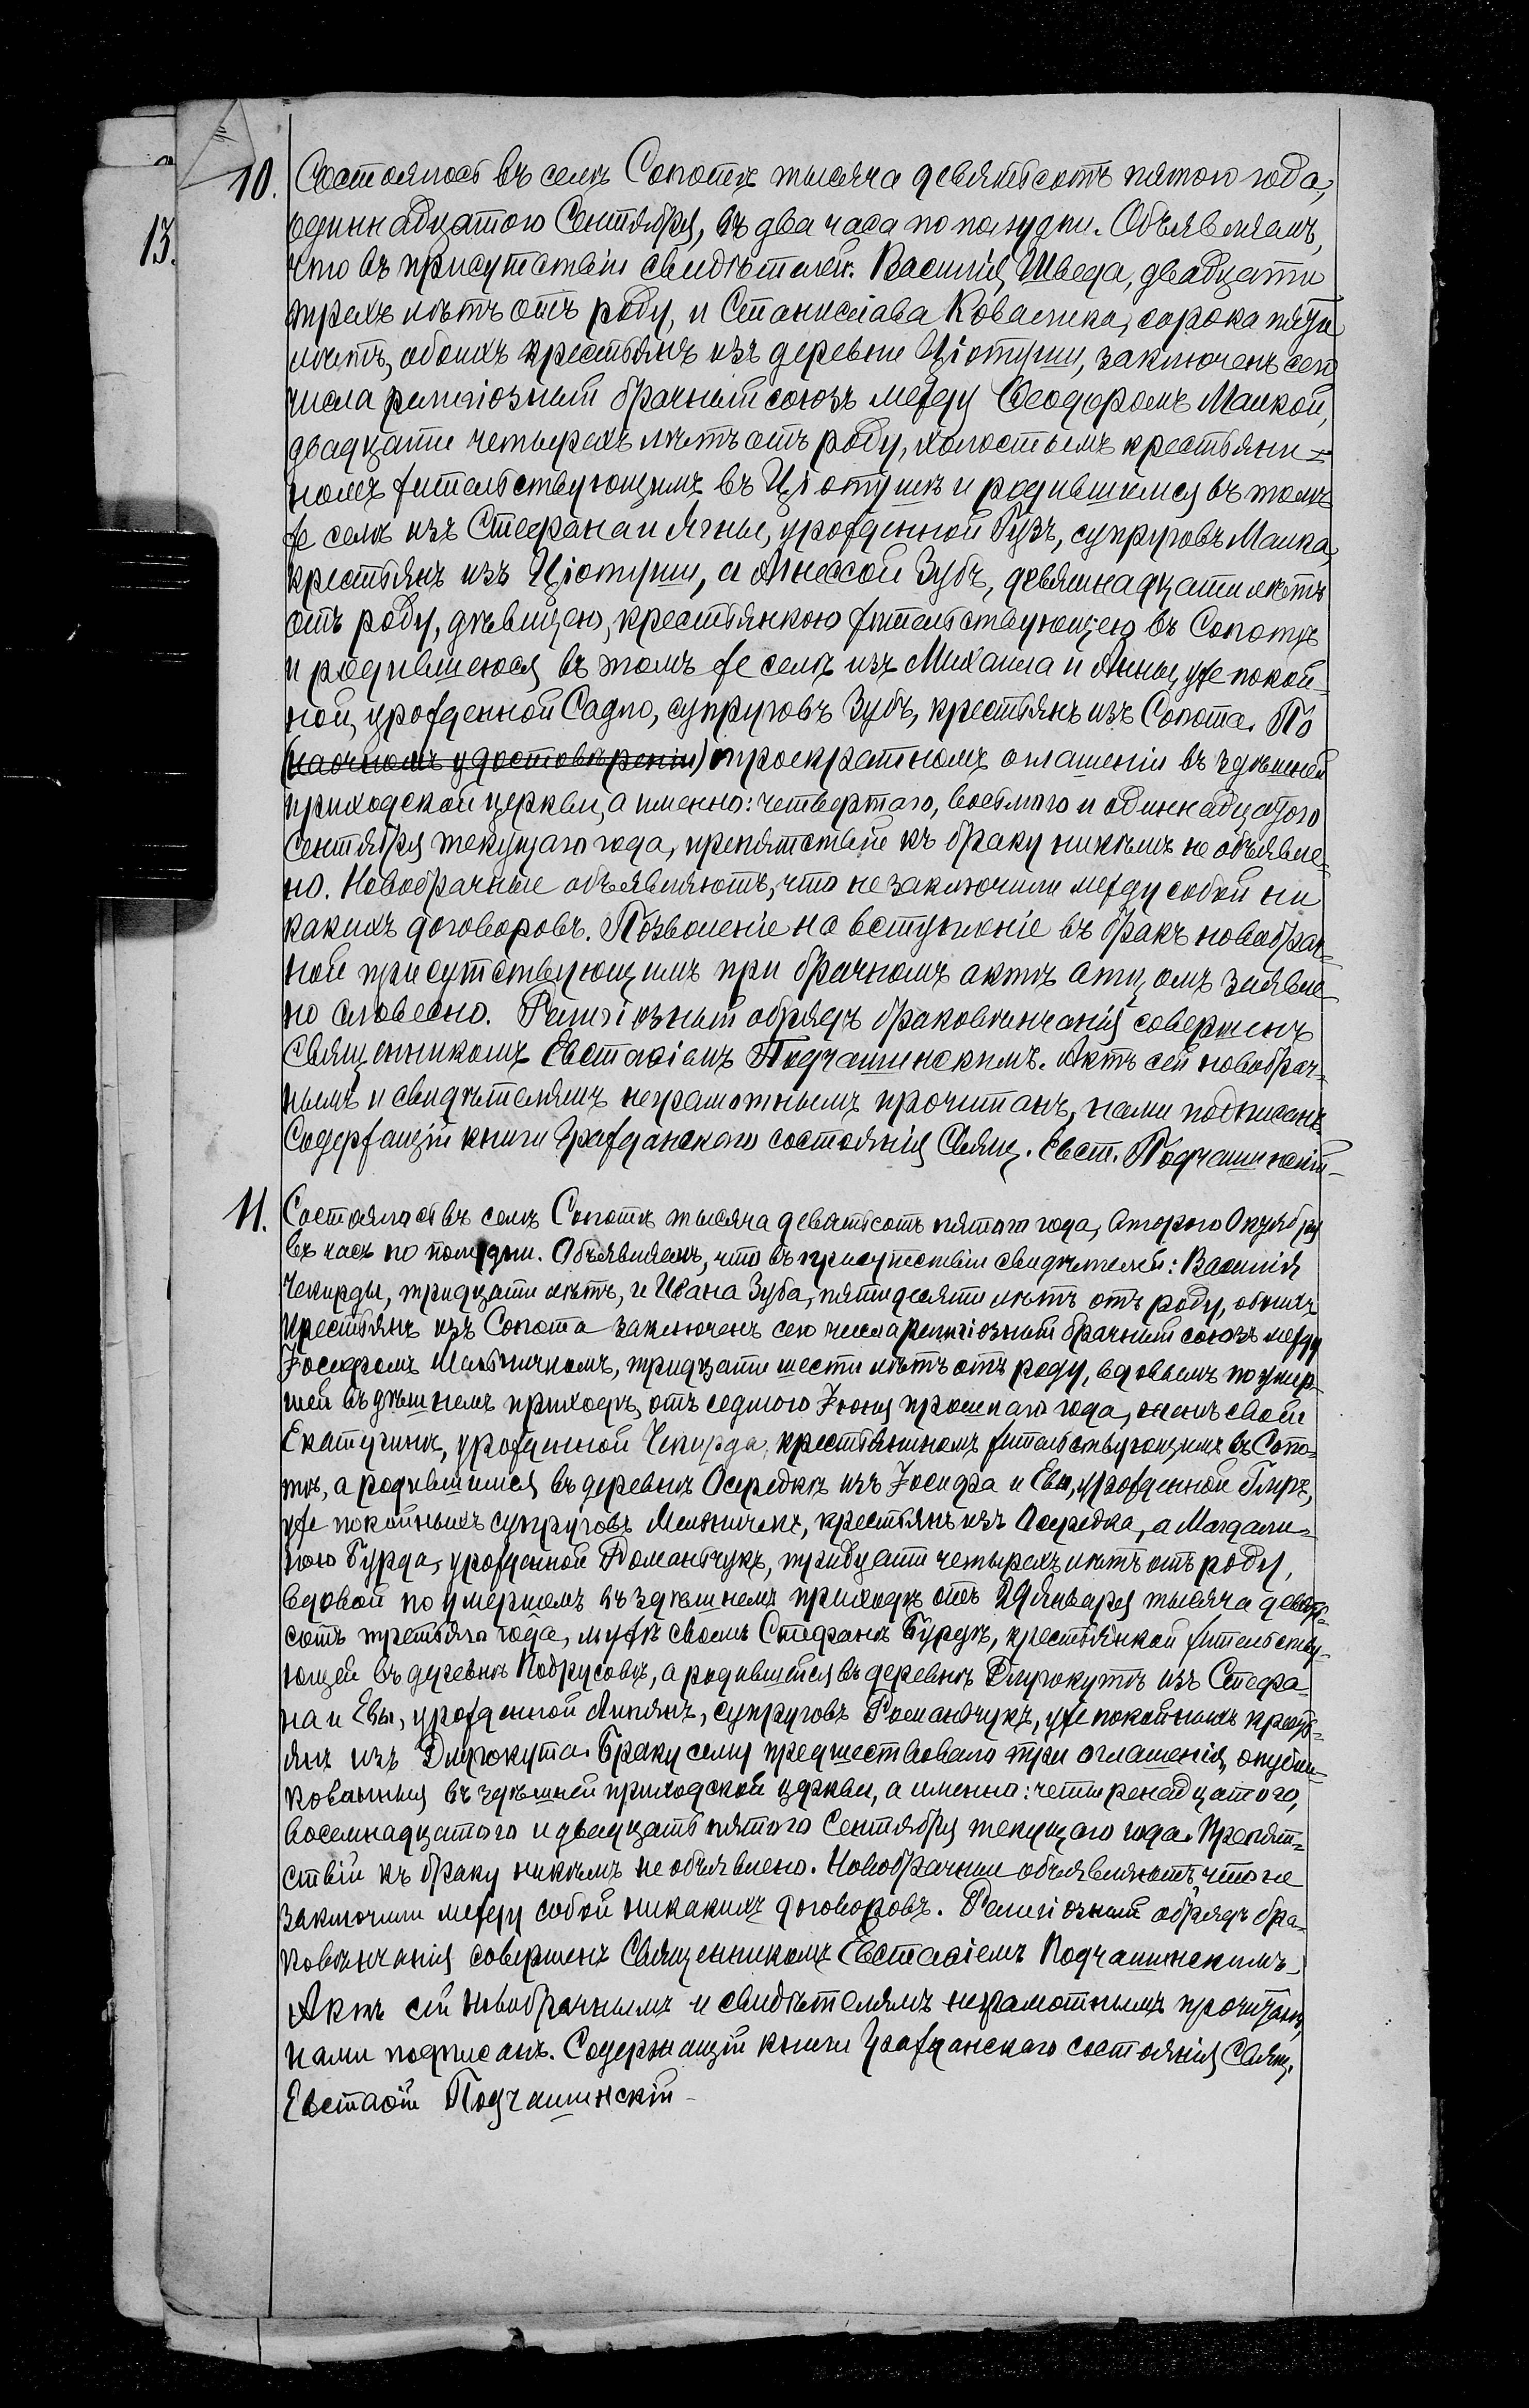 10. Состоялось въ селѣ Сопотѣ тысяча девятьсотъ пятого года,
одиннадцатого Сентября, въ два часа по полудни. Объявляемъ,
13.
что въ присутствіи свидѣтелей: Василія Шведа, двадцати
трехъ лѣтъ отъ роду, и Станислава Ковалика, сорока пяти
лѣтъ, обоихъ крестьянъ изъ деревни Ціотуши, заключенъ сего
числа религіозный брачный союзъ между Ѳеодоромъ Малкой,
двадцати четырехъ лѣтъ отъ роду, холостымъ крестьяни-
номъ жительствующимъ въ Ціотушѣ и родившимся въ томъ
же селѣ изъ Стефана и Ягны, урожденной Гузъ, супруговъ Малка,
крестьянъ изъ Ціотуши, а Агнессой Зубъ, девятнадцати лѣтъ
отъ роду, дѣвицею, крестьянкою жительствующею въ Сопотѣ
и родившеюся въ томъ же селѣ изъ Михаила и Анны, уже покой-
ной, урожденной Садло, супруговъ Зубъ, крестьянъ изъ Сопота. По
(наочномъ удостовѣреніи) троекратномъ оглашеніи въ здѣшней
приходской церкви, а именно: четвертаго, восьмого и одиннадцатого
Сентября текущаго года, препятствій къ браку никѣмъ не объявле-
но. Новобрачные объявляютъ, что не заключили между собой ни
какихъ договоровъ. Позволеніе на вступленіе въ бракъ новобрач-
ной присутствующимъ при брачномъ актѣ отцомъ заявле-
но словесно. Религіозный обрядъ браковѣнчанія совершенъ
Священникомъ Евстафіемъ Подчашинскимъ. Актъ сей новобрач-
нымъ и свидѣтелямъ неграмотнымъ прочитанъ, нами подписанъ.
Содержащій книги Гражданскаго состоянія Свящ. Евст. Подчашинскій
11. Состоялось въ селѣ Сопотѣ тысяча девятьсотъ пятого года, второго Октября
въ часъ по полудни. Объявляемъ, что въ присутствіи свидѣтелей: Василія
Чекирды, тридцати лѣтъ, и Ивана Зуба, пятидесяти лѣтъ отъ роду, обоихъ
крестьянъ изъ Сопота заключенъ сего числа религіозный брачный союзъ между
Іосифомъ Мельничкомъ, тридцати шести лѣтъ отъ роду, вдовымъ по умер-
шей въ здѣшнемъ приходѣ, отъ седмого Іюня прошлаго года, женѣ своей
Екатеринѣ, урожденной Чекирда, крестьяниномъ жительствующимъ въ Сопо-
тѣ, а родившимся въ деревнѣ Осередкѣ изъ Іосифа и Евы, урожденной Гмиръ,
уже покойныхъ супруговъ Мельничекъ, крестьянъ изъ Осередка, а Магдали-
ною Бурда, урожденной Романчукъ, тридцати четырехъ лѣтъ отъ роду,
вдовой по умершемъ въ здѣшнемъ приходѣ отъ 29 Января тысяча девять-
сотъ третьяго года, мужѣ своемъ Стефанѣ Бурдѣ, крестьянкой жительству-
ющей въ деревнѣ Нобрусовѣ, а родившейся въ деревнѣ Длугокутѣ изъ Стефа-
на и Евы, урожденной Липянъ, супруговъ Романчукъ, уже покойныхъ кресть-
янъ изъ Длугокута. Браку сему предшествовало три оглашенія, опубли-
кованныя въ здѣшней приходской церкви, а именно: четырнадцатого,
восемнадцатого и двадцать пятого Сентября текущаго года. Препят-
ствій къ браку никѣмъ не объявлено. Новобрачные объявляютъ, что не
заключили между собой никакихъ договоровъ. Религіозный обрядъ бра-
ковѣнчанія совершенъ Священникомъ Евстафіемъ Подчашинскимъ.
Актъ сей новобрачнымъ и свидѣтелямъ неграмотнымъ прочитанъ,
нами подписанъ. Содержащій книги Гражданскаго состоянія Свящ.
Евстафій Подчашинскій